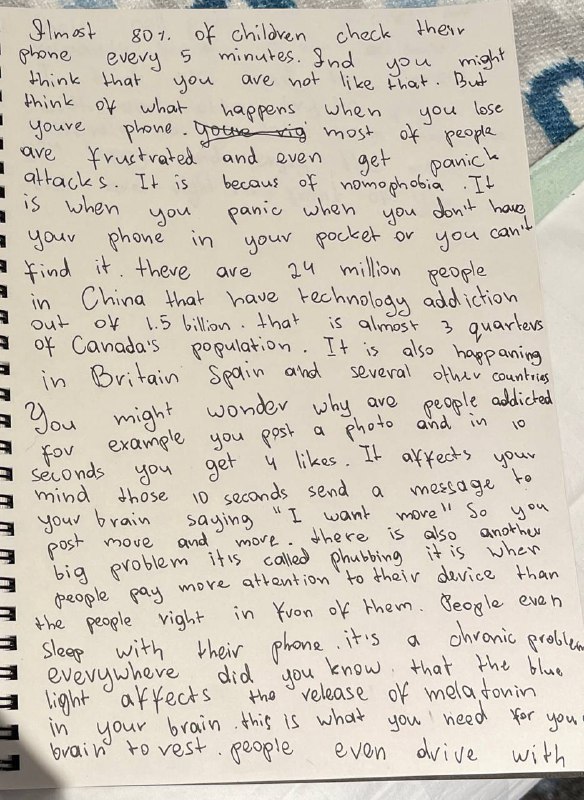 Almost 80% of children check their
phone every 5 minutes. And you might
think that you are not like that. But
think of what happens when you lose
youre phone. most of people
are frustrated and even get panick
attacks. It is becaus of nomophobia. It
is when you panic when you don't have
your phone in your pocket or you can't
find it. there are 24 million people
in China that have technology addiction
out of 1.5 billion. that is almost 3 quarters
of Canada's population. It is also happaning
in Britain Spain and several other countries
You might wonder why are people addicted
for example you post a photo and in 10
seconds you get 4 likes. It affects your
mind those 10 seconds send a message to
your brain saying "I want more" So you
post more and more. there is also another
big problem it's called phubbing it is when
people pay more attention to their device than
the people right in fron of them. People even
sleep with their phone. it's a chronic problem
everywhere did you know that the blue
light affects the release of melatonin
in your brain. this is what you need for you
brain to rest. people even drive with